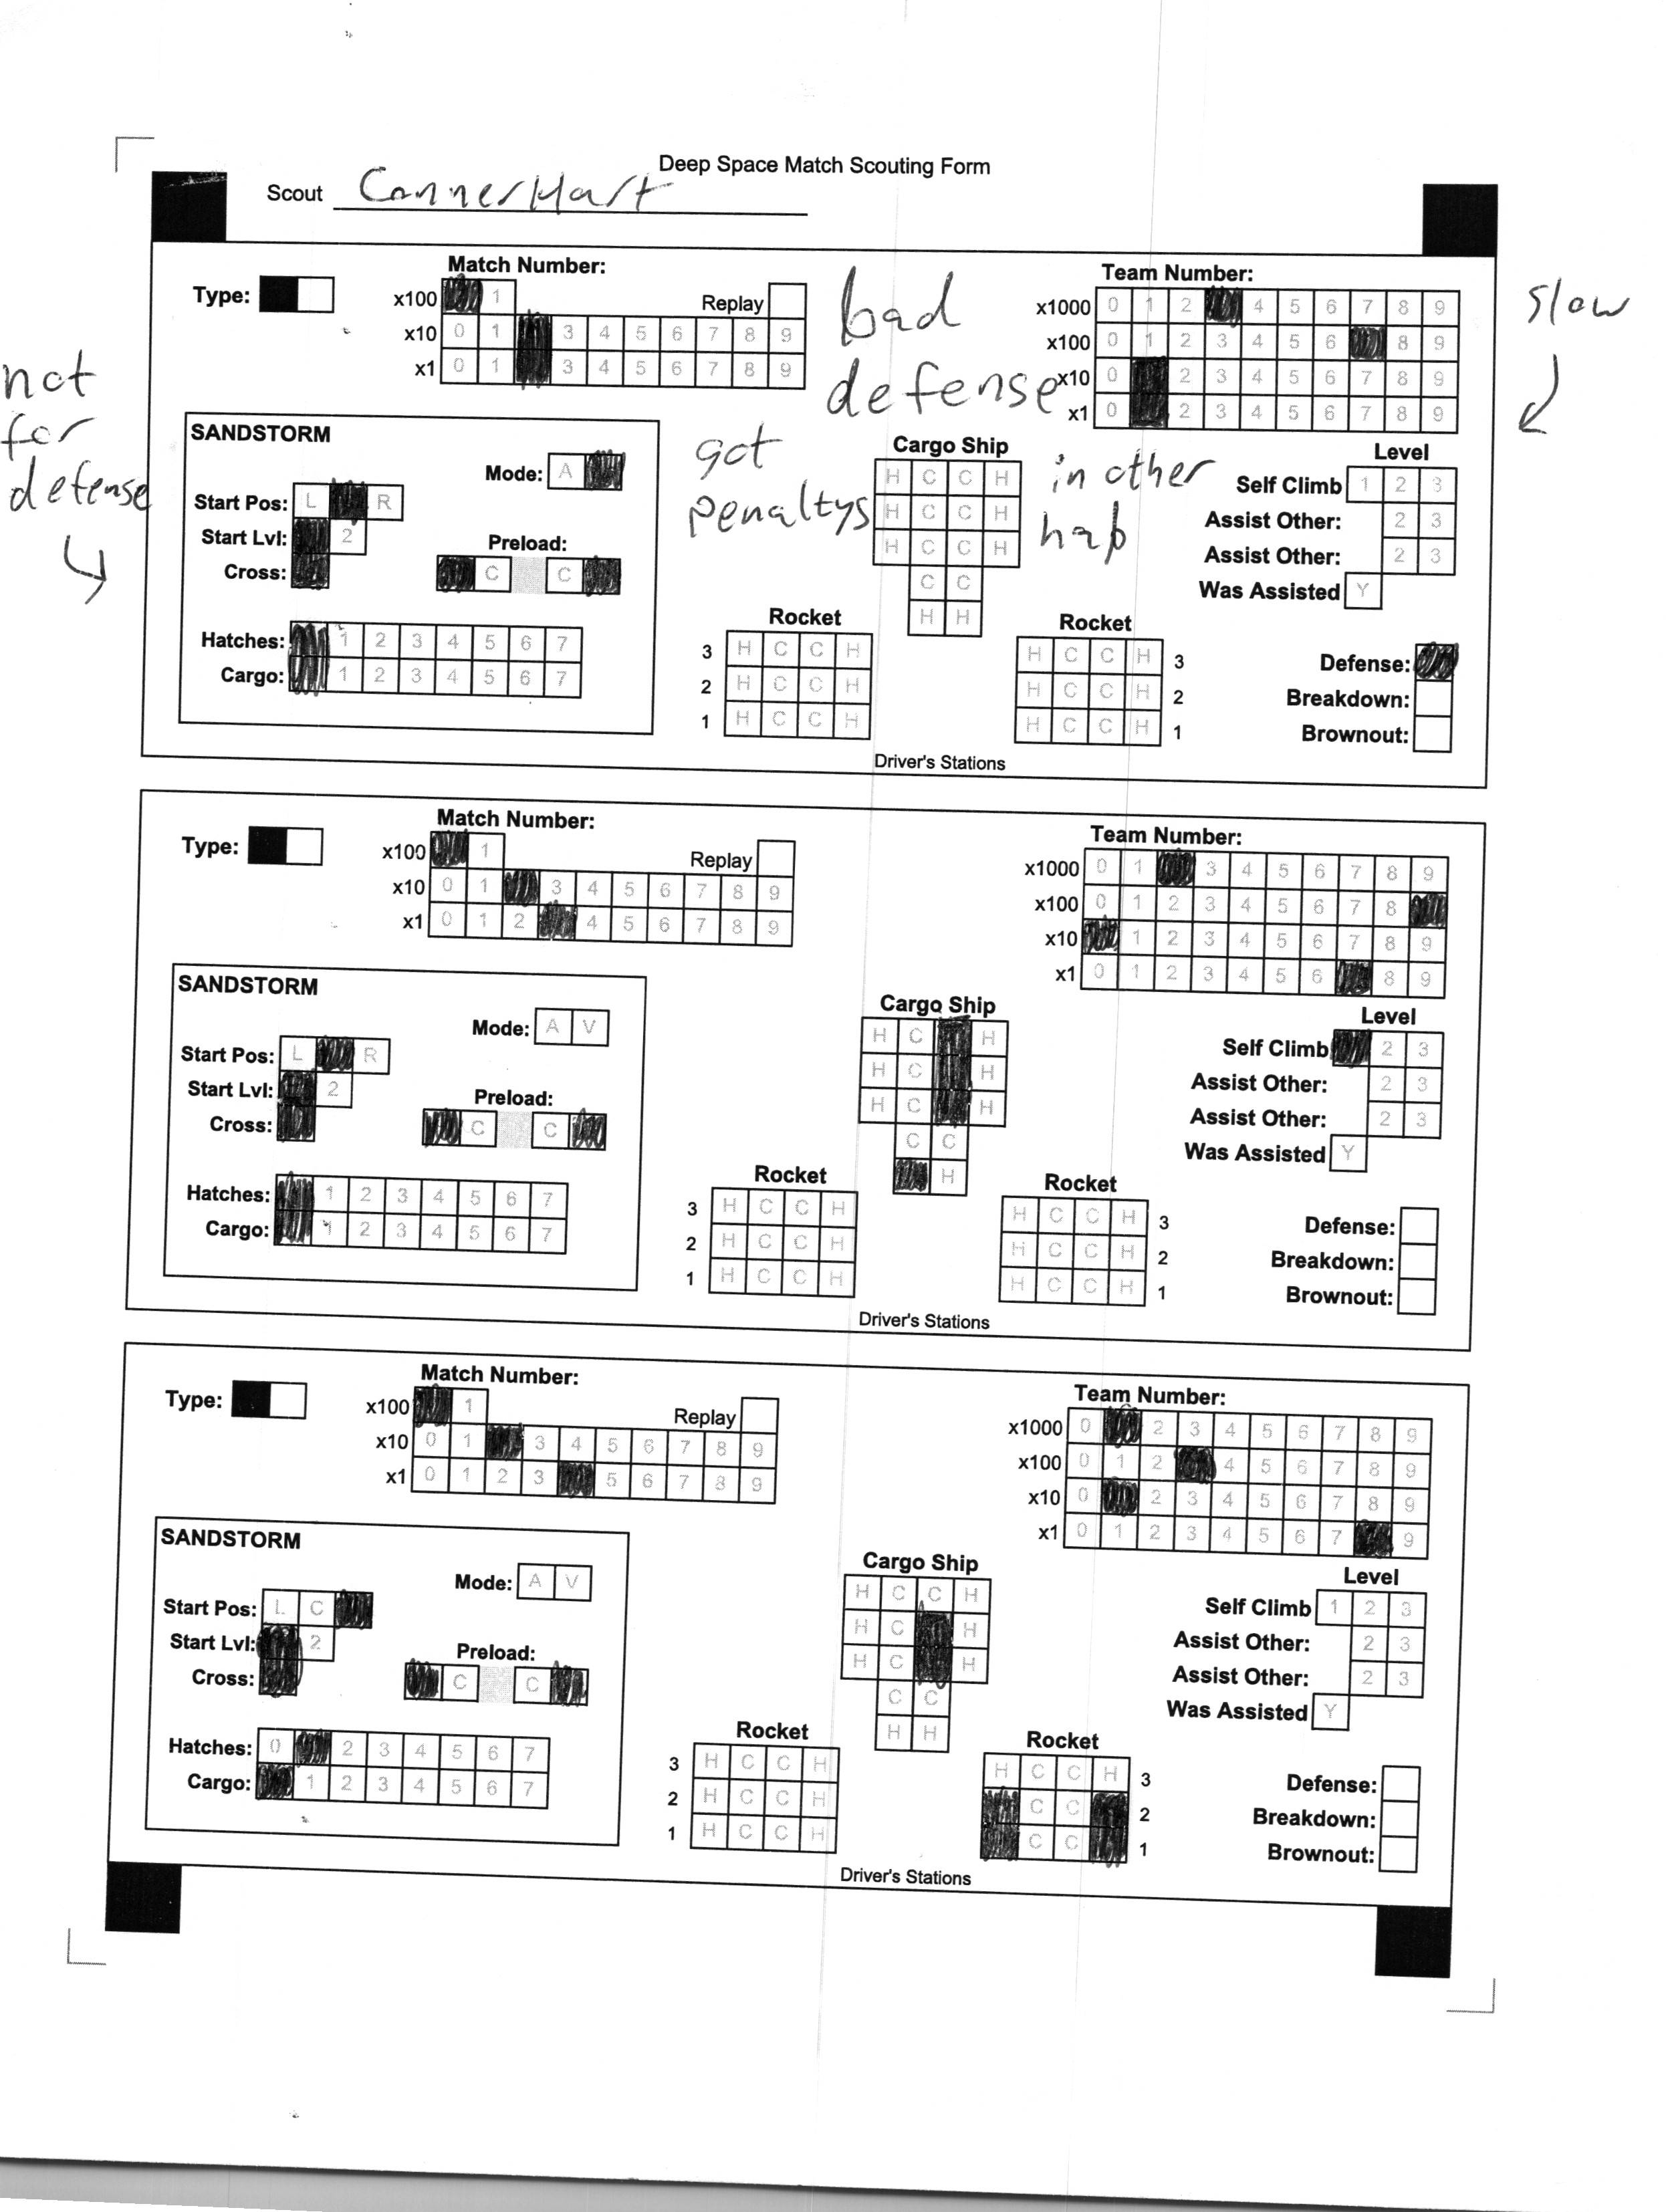 Deep Space Match Scouting Form
Scout Conner Hart
Match Number:
Team Number:
Type:
x100 1
Replay
x10 0 1 3 4 5 6 7 8 9
x1 0 1 3 4 5 6 7 8 9
bad
defense
x1000 0 1 2 4 5 6 7 8 9
x100 0 1 2 3 4 5 6 8 9
x10 0 2 3 4 5 6 7 8 9
x1 0 2 3 4 5 6 7 8 9
slow
not
for
defense
SANDSTORM
Mode: A
Start Pos: L R
Start Lvl: 2
Cross:
Preload:
C C
Hatches: 1 2 3 4 5 6 7
Cargo: 1 2 3 4 5 6 7
got
penaltys
in other
hab
Cargo Ship
H C C H
H C C H
H C C H
C C
H H
Rocket
3 H C C H
2 H C C H
1 H C C H
Rocket
H C C H 3
H C C H 2
H C C H 1
Level
Self Climb 1 2 3
Assist Other: 2 3
Assist Other: 2 3
Was Assisted Y
Defense:
Breakdown:
Brownout:
Driver's Stations
Match Number:
Team Number:
Type:
x100 1
Replay
x10 0 1 3 4 5 6 7 8 9
x1 0 1 2 4 5 6 7 8 9
x1000 0 1 3 4 5 6 7 8 9
x100 0 1 2 3 4 5 6 7 8
x10 1 2 3 4 5 6 7 8 9
x1 0 1 2 3 4 5 6 8 9
SANDSTORM
Mode: A V
Start Pos: L R
Start Lvl: 2
Cross:
Preload:
C C
Hatches: 1 2 3 4 5 6 7
Cargo: 1 2 3 4 5 6 7
Cargo Ship
H C H
H C H
H C H
C C
H
Rocket
3 H C C H
2 H C C H
1 H C C H
Rocket
H C C H 3
H C C H 2
H C C H 1
Level
Self Climb 2 3
Assist Other: 2 3
Assist Other: 2 3
Was Assisted Y
Defense:
Breakdown:
Brownout:
Driver's Stations
Match Number:
Team Number:
Type:
x100 1
Replay
x10 0 1 3 4 5 6 7 8 9
x1 0 1 2 3 5 6 7 8 9
x1000 0 2 3 4 5 6 7 8 9
x100 0 1 2 4 5 6 7 8 9
x10 0 2 3 4 5 6 7 8 9
x1 0 1 2 3 4 5 6 7 9
SANDSTORM
Mode: A V
Start Pos: L C
Start Lvl: 2
Cross:
Preload:
C C
Hatches: 0 2 3 4 5 6 7
Cargo: 1 2 3 4 5 6 7
Cargo Ship
H C C H
H C H
H C H
C C
H H
Rocket
3 H C C H
2 H C C H
1 H C C H
Rocket
H C C H 3
C C 2
C C 1
Level
Self Climb 1 2 3
Assist Other: 2 3
Assist Other: 2 3
Was Assisted Y
Defense:
Breakdown:
Brownout:
Driver's Stations